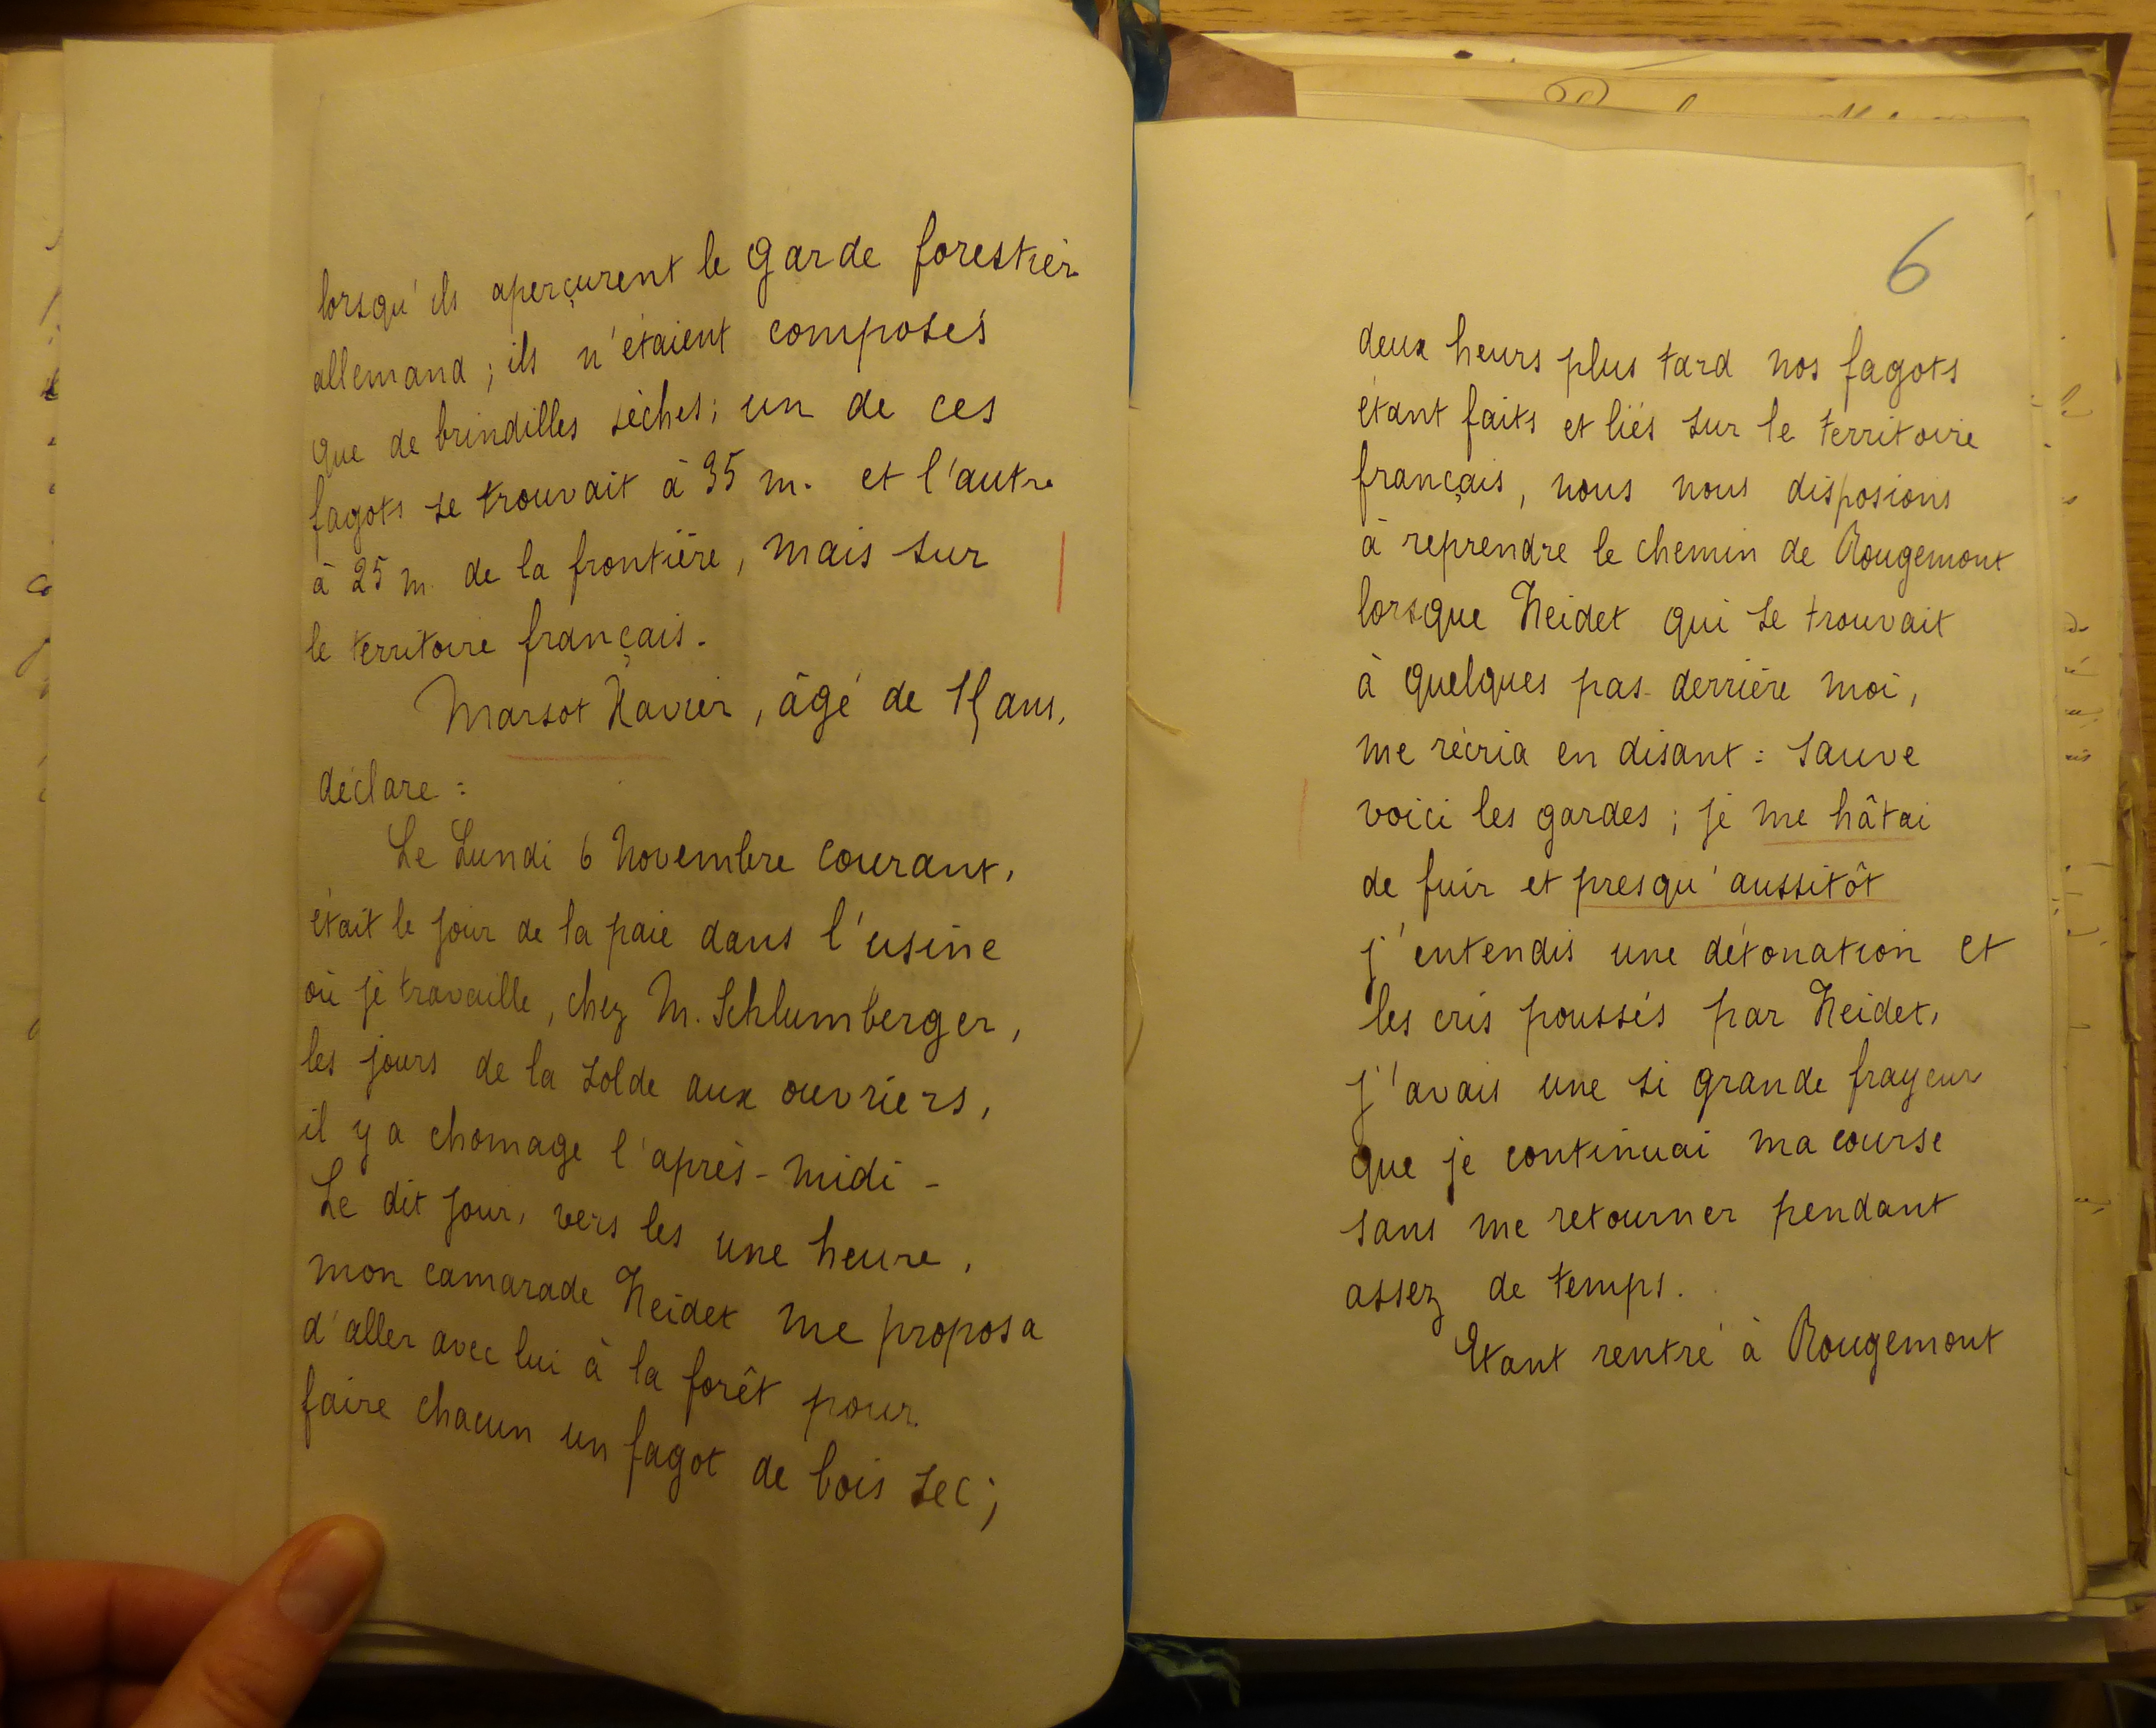 lorsqu'ils aperçurent le garde forestier
allemand ; ils n'étaient composés
que de brindilles sèches ; un de ces
fagots se trouvait à 35 m. et l'autre
à 25 m. de la frontière, mais sur
le territoire français.
Marsot Xavier, âgé de 15 ans,
déclare :
Le Lundi 6 Novembre courant,
était le jour de la paie dans l'usine
où je travaille, chez M. Schlumberger,
les jours de la solde aux ouvriers,
il y a chomage l'après-midi -
Le dit jour, vers les une heure,
mon camarade Neidet me proposa
d'aller avec lui à la forêt pour
faire chacun un fagot de bois sec ;
6
deux heurs plus tard nos fagots
étant faits et liés sur le territoire
français, nous nous disposions
à reprendre le chemin de Rougemont
lorsque Neidet qui se trouvait
à quelques pas derrière moi,
me récria en disant : sauve
voici les gardes ; je me hâtai
de fuir et presqu'aussitôt
j'entendis une détonation et
les cris poussés par Neidet,
j'avais une si grande frayeur
que je continuai ma course
sans me retourner pendant
assez de temps.
Etant rentré à Rougemont